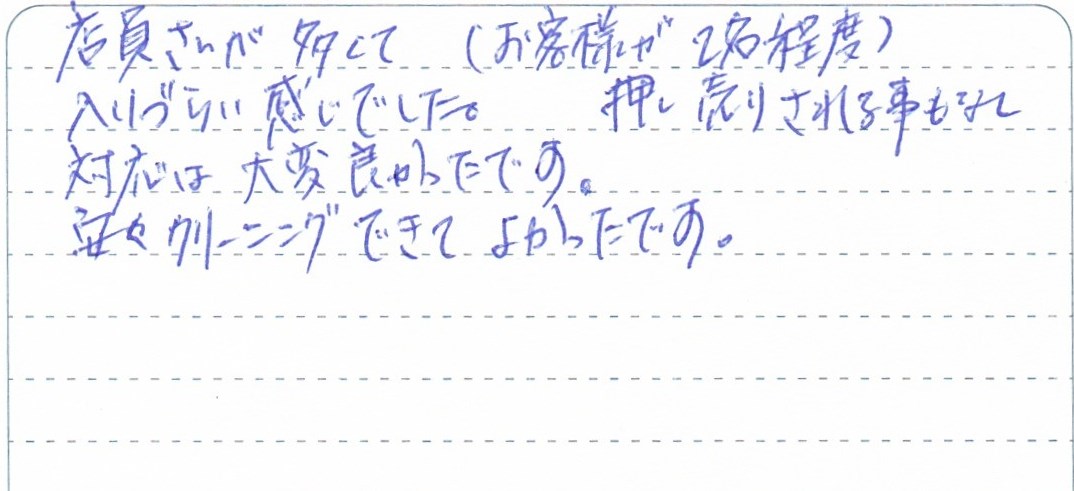 店員さんが多くて (お客様が2名程度)
入りづらい感じでした。 押し売りされる事もなく
対応は大変良かったです。
クリーニングできてよかったです。